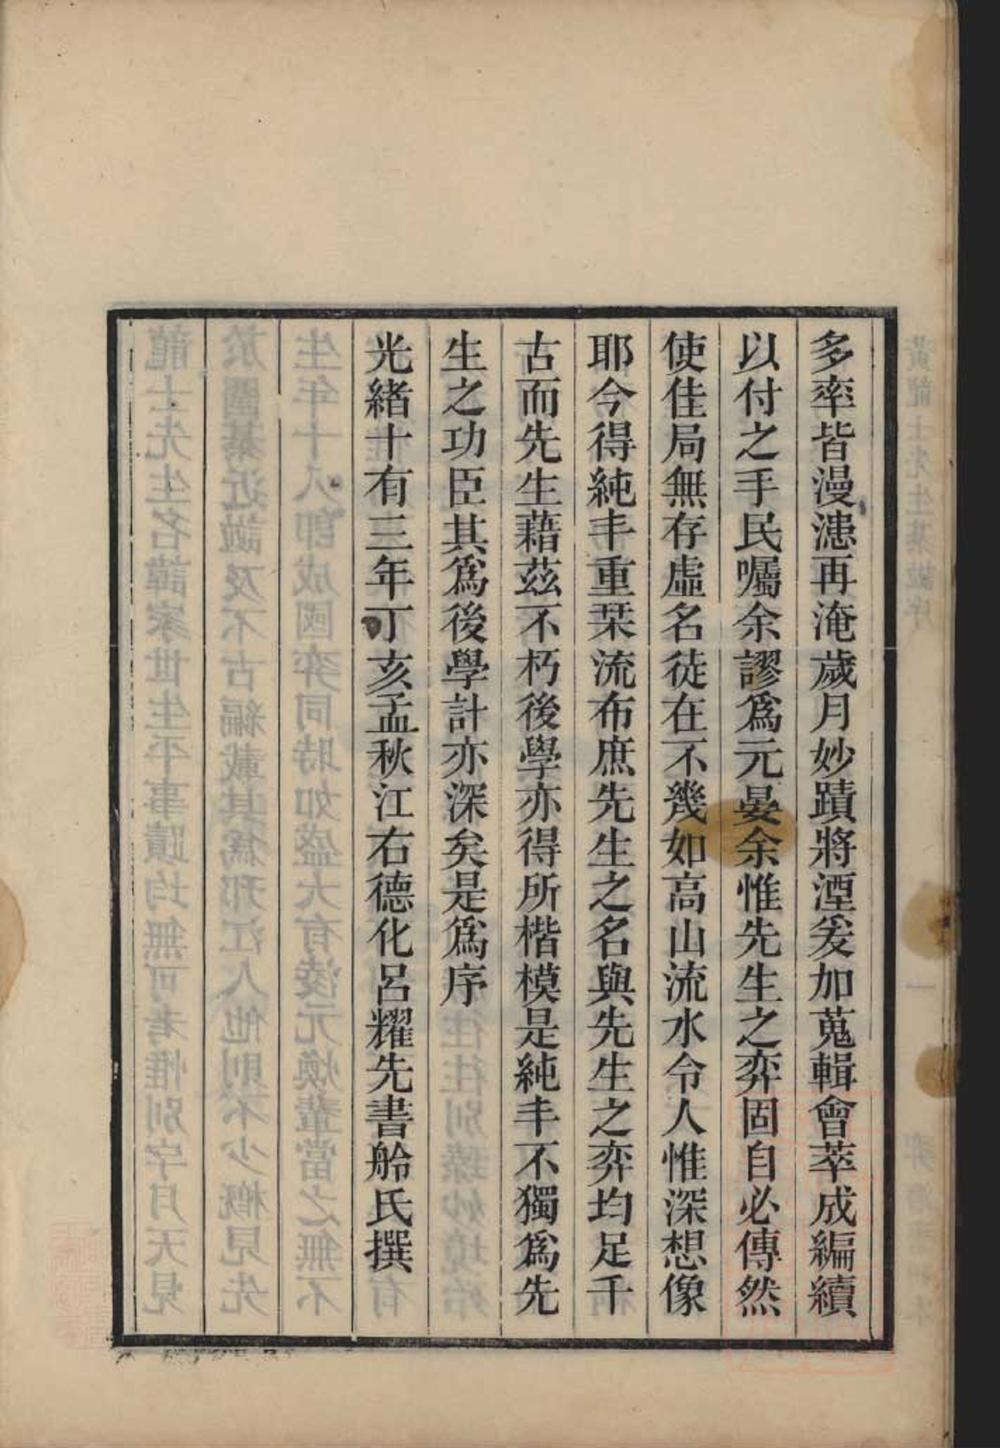 多率皆漫漶再淹歲月妙蹟將湮爰加蒐輯會萃成編續
以付之手民囑余謬爲元晏余惟先生之弈固自必傳然
使佳局無存虛名徒在不幾如高山流水令人惟深想像
耶今得純丰重栞流布庶先生之名與先生之弈均足千
古而先生藉茲不朽後學亦得所楷模是純丰不獨爲先
生之功臣其爲後學計亦深矣是爲序
光緒十有三年丁亥孟秋江右德化呂耀先書舲氏撰